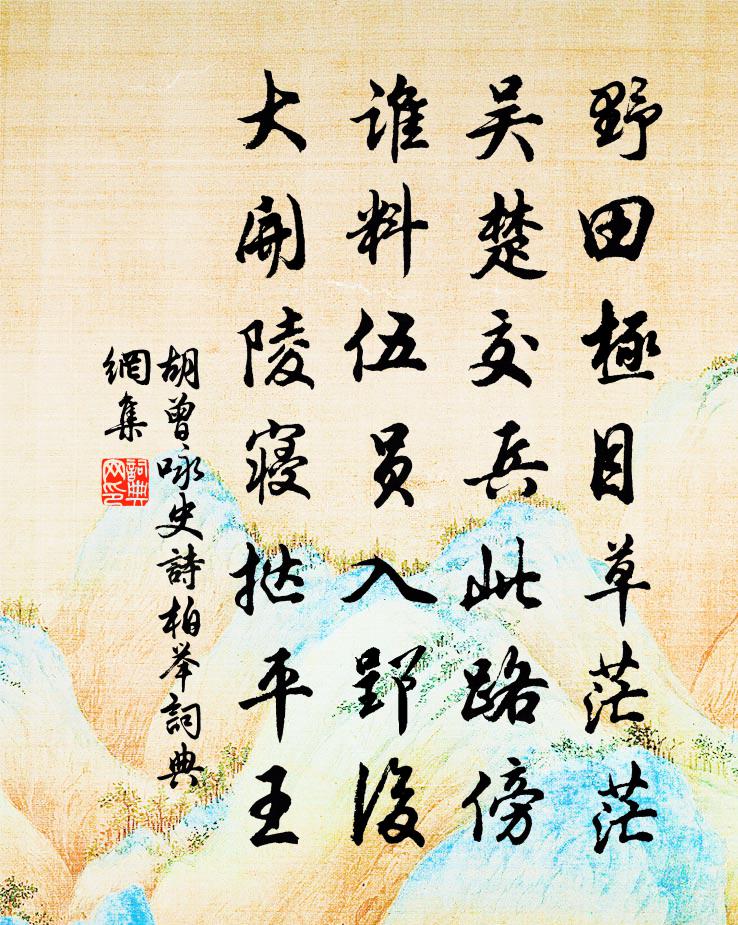 野田極目草茫茫
吴楚交兵此路傍
谁料伍员入郢後
大開陵寝挞平王
胡曾咏史詩柏举詞典
網集
詞典
网印